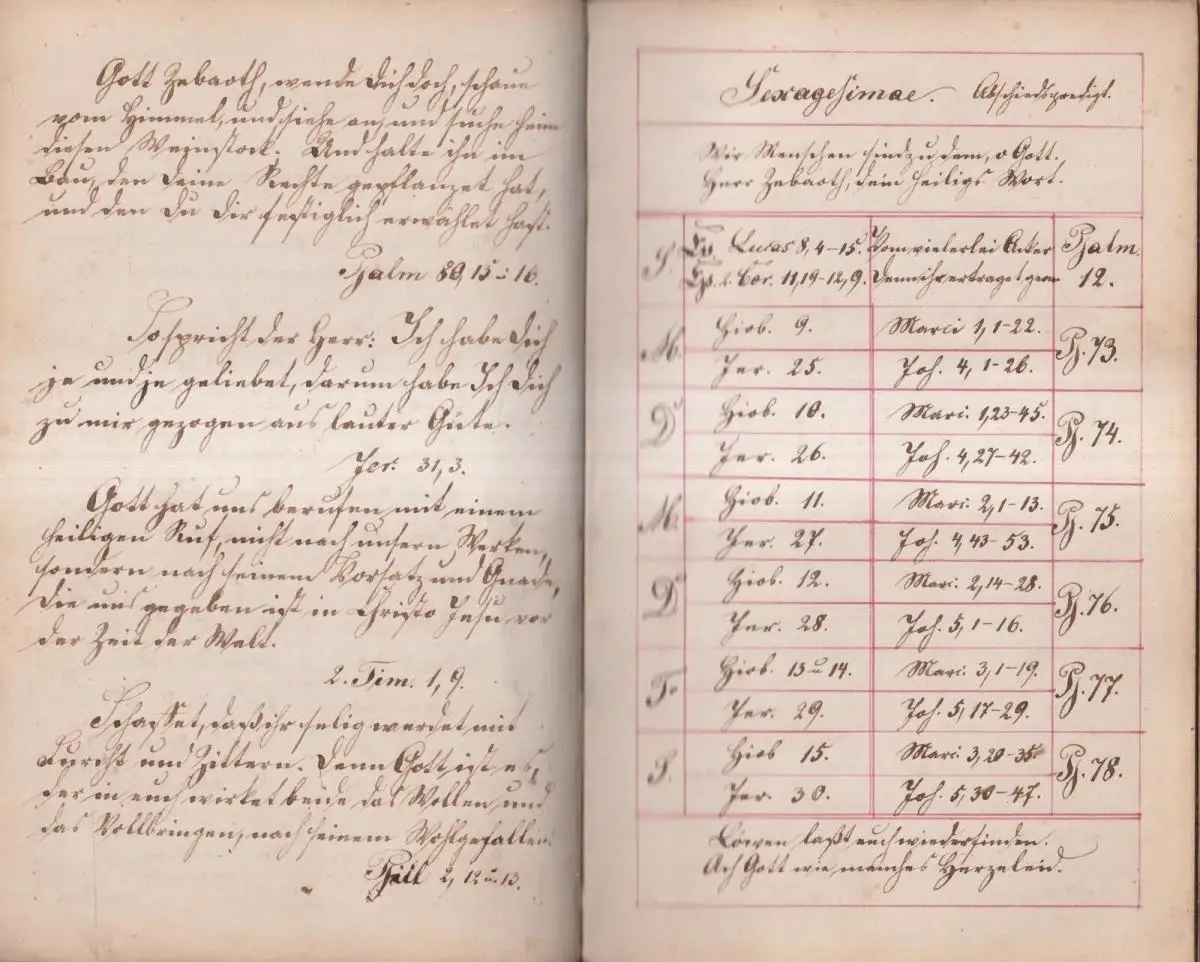 Gott Zebaoth, wende Dich doch, schaue
vom Himmel, und siehe an, und suche heim
diesen Weinstock. Und halte ihn im
Bau, den Deine Rechte gepflanzet hat,
und den Du Dir festiglich erwählet hast.
Psalm 80, 15 u. 16.
So spricht der Herr: Ich habe Dich
je und je geliebet, darum habe Ich Dich
zu mir gezogen aus lauter Güte.
Jer. 31, 3.
Gott hat uns berufen mit einem
heiligen Ruf, nicht nach unsern Werken,
sondern nach seinem Vorsatz und Gnade,
die uns gegeben ist in Christo Jesu vor
der Zeit der Welt.
2. Tim. 1, 9.
Schaffet, daß ihr selig werdet mit
Furcht und Zittern. Denn Gott ist es,
der in euch wirket beide das Wollen und
das Vollbringen, nach seinem Wohlgefallen.
Phil 2, 12 u. 13.
Sexagesimae. Abschiedspredigt.
Wir Menschen sind zu dem, o Gott.
Herr Zebaoth, dein heiligs Wort.
S. Ev. Lucas 8, 4-15. Vom vielerlei Acker Psalm
Ep. 2. Cor. 11, 19-12, 9. Denn ihr vertraget gern 12.
M. Hiob. 9. Marci 1, 1-22. Ps. 73.
Jer. 25. Joh. 4, 1-26.
D. Hiob. 10. Marc. 1, 23-45. Ps. 74.
Jer. 26. Joh. 4, 27-42.
M. Hiob. 11. Marc. 2, 1-13. Ps. 75.
Jer. 27. Joh. 4, 43-53.
D. Hiob. 12. Marc. 2, 14-28. Ps. 76.
Jer. 28. Joh. 5, 1-16.
F. Hiob. 13 u 14. Marc. 3, 1-19. Ps. 77.
Jer. 29. Joh. 5, 17-29.
S. Hiob 15. Marc. 3, 20-35. Ps. 78.
Jer. 30. Joh. 5, 30-47.
Löwen laßt euch wiederfinden.
Ach Gott wie manches Herzeleid.